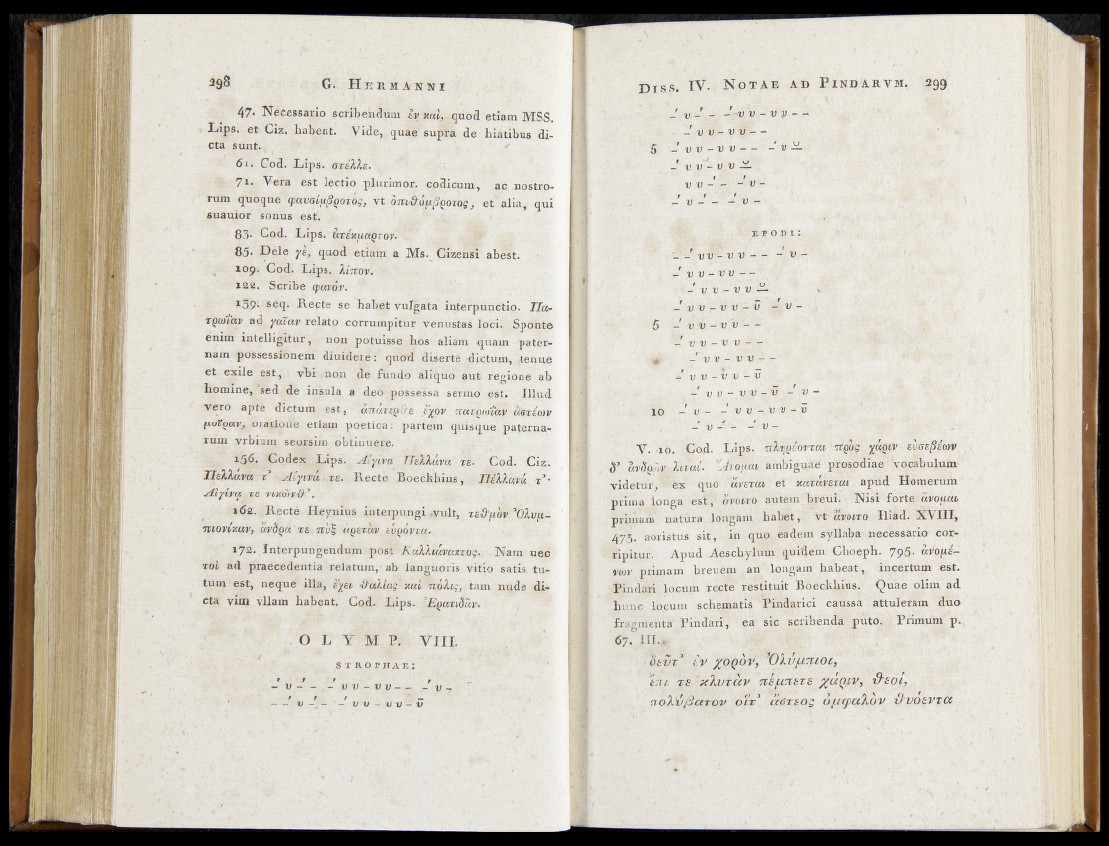 298 G. HERMANNI
47. Necessario scribendum ἐν καὶ, quod etiam MSS.
Lips. et Ciz. habent. Vide, quae supra de hiatibus di-
cta sunt.
61. Cod. Lips. στέλλε.
71. Vera est lectio plurimor. codicum, ac nostro-
rum quoque φαυσίμβροτός, vt ὀπιθόμβροτος, et alia, qui
suauior sonus est.
83. Cod. Lips. ἀτέκμαρτον.
85. Dele γὲ, quod etiam a Ms. Cizensi abest.
109. Cod. Lips. λίπον.
122. Scribe φατόν.
139. seq. Recte se habet vulgata interpunctio. Πα-
τρωΐαν ad γαῖαν relato corrumpitur venustas loci. Sponte
enim intelligitur, non potuisse hos aliam quam pater-
nam possessionem diuidere: quod diserte dictum, tenue
et exile est, vbi non de fundo aliquo aut regione ab
homine, sed de insula a deo possessa sermo est. Illud
vero apte dictum est, ἀπάτερθε ἔχον πατρωΐαν ἀστέων
μοῖραν, oratione etiam poetica: partem quisque paterna-
rum vrbium seorsim obtinuere.
156. Codex Lips. Αἴγινα Πελλάνα τε. Cod. Ciz.
Πελλάνα τ᾽ Αἴγινά τε. Recte Boeckhius, Πέλλανά τ᾽·
Αἰγίνᾳ τε νικῶνθ᾽.
162. Recte Heynius interpungi vult, τεθμὸν Ὀλυμ-
πιονίκαν, ἄνδρα τε πὺξ ἀρετὰν εὑρόντα.
172. Interpungendum post Καλλιάνακτος. Nam nec
τοὶ ad praecedentia relatum, ab languoris vitio satis tu-
tum est, neque illa, ἔχει θαλίας καὶ πόλις, tam nude di-
cta vim vllam habent. Cod. Lips. Ἐρατιδᾶν.
OLYMP. VIII.
STROPHAE:
–́ υ –́ – –́ υ υ – υ υ – – –́ υ –
– –́ υ –́ – –́ υ υ – υ υ – ῡ
DISS. IV. NOTAE AD PINDARVM. 299
–́ υ –́ – –́ υ υ – υ υ – –
–́ υ υ – υ υ – –
5 –́ υ υ – υ υ – – –́ υ –
–́ υ υ – υ υ –
υ υ –́ – –́ υ –
–́ υ –́ – –́ υ –
EPODI:
– –́ υ υ – υ υ – – –́ υ –
–́ υ υ – υ υ – –
–́ υ υ – υ υ –
–́ υ υ – υ υ – ῡ –́ υ –
5 –́ υ υ – υ υ – –
–́ υ υ – υ υ – –
–́ υ υ – υ υ – –
–́ υ υ – υ υ – ῡ
–́ υ υ – υ υ – ῡ –́ υ –
10 –́ υ – –́ υ υ – υ υ – ῡ
–́ υ –́ – –́ υ –
V. 10. Cod. Lips. πληρέονται πρὸς χάριν εὐσεβέων
δ᾽ ἀνδρῶν λιταί. Ἄνομαι ambiguae prosodiae vocabulum
videtur, ex quo ἄνεται et κατάνεται apud Homerum
prima longa est, ἄνοιτο autem breui. Nisi forte ἄνομαι
primam natura longam habet, vt ἄνοιτο Iliad. XVIII,
473. aoristus sit, in quo eadem syllaba necessario cor-
ripitur. Apud Aeschylum quidem Choeph. 795. ἀνομέ-
νων primam breuem an longam habeat, incertum est.
Pindari locum recte restituit Boeckhius. Quae olim ad
hunc locum schematis Pindarici caussa attuleram duo
fragmenta Pindari, ea sic scribenda puto. Primum p.
67. III.
δεῦτ᾽ ἐν χορὸν, Ὀλύμπιοι,
ἐπι τε κλυτὰν πέμπετε χάριν, θεοὶ,
πολύβατον οἵτ᾽ ἄστεος ὀμφαλὸν θυόεντα